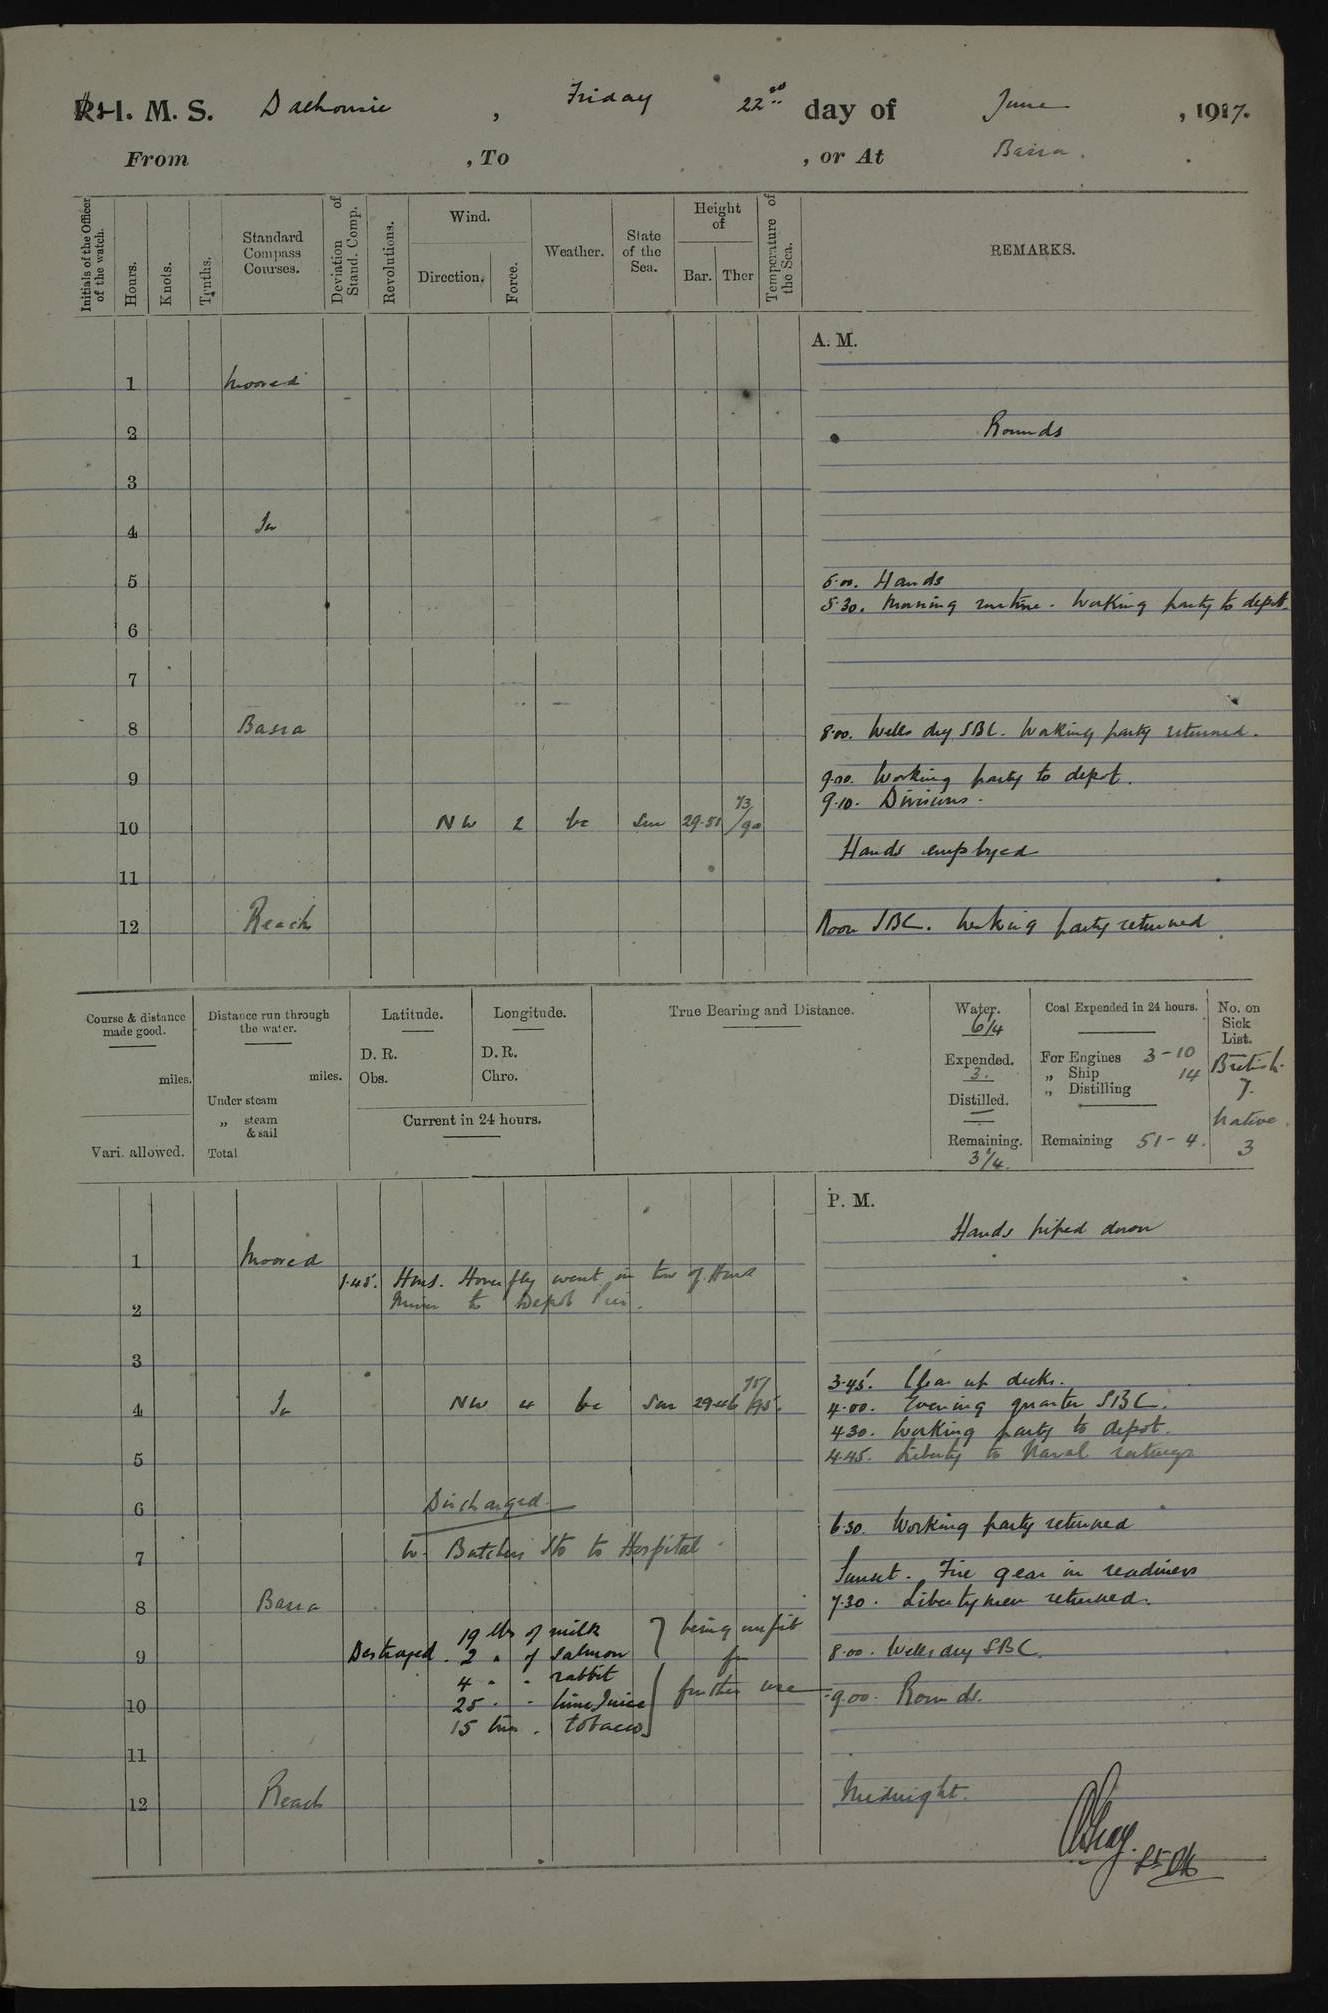 H. M. S. Dalhousie, Friday 22nd day of June, 1917.
From , To , or At Basra.
Initials of the Officer of the watch.
Hours.
Knots.
Tenths.
Standard Compass Courses.
Deviation of Stand. Comp.
Revolutions.
Wind.
Direction.
Force.
Weather.
State of the Sea.
Height of
Bar. Ther
Temperature of the Sea.
REMARKS.
A. M.
1 Moored
2 Rounds
3
4 In
5 5.00. Hands
5.30. Morning routine. Working party to depot.
6
7
8 Basra 8.00. Wells dry SBC. Working party returned.
9 9.00. Working party to depot.
9.10. Divisions.
10 NW 2 bc Sm 29.51 73/90
Hands employed
11
12 Reach Noon SBC. Working party returned
Course & distance made good.
miles.
Vari. allowed.
Distance run through the water.
miles.
Under steam
„ steam & sail
Total
Latitude.
D. R.
Obs.
Longitude.
D. R.
Chro.
Current in 24 hours.
True Bearing and Distance.
Water.
6/4
Expended.
3.
Distilled.
Remaining.
3/4.
Coal Expended in 24 hours.
For Engines 3-10
„ Ship 14
„ Distilling
Remaining 51-4.
No. on Sick List.
British
7.
Native.
3
P. M.
Hands piped down
1 Moored
1.45. HMS. Hoverfly went in tow of HMS
Miner to Depot Pier.
2
3
3.45. Clear up decks.
4 In NW 4 bc Sm 29.46 75/95. 4.00. Evening quarter SBC.
4.30. Working party to depot.
5 4.45. Liberty to Naval ratings
6 Discharged
6.30. Working party returned
7 W. Butcher Sto to Hospital.
Sunset. Fire gear in readiness
8 Basra 7.30. Liberty men returned.
19 lbs of milk being unfit
9 Destroyed. 2 " of Salmon for 8.00. Wells dry SBC.
4 " " rabbit further use
10 25 " " lime Juice 9.00. Rounds.
15 tins. tobacco
11
12 Reach Midnight.